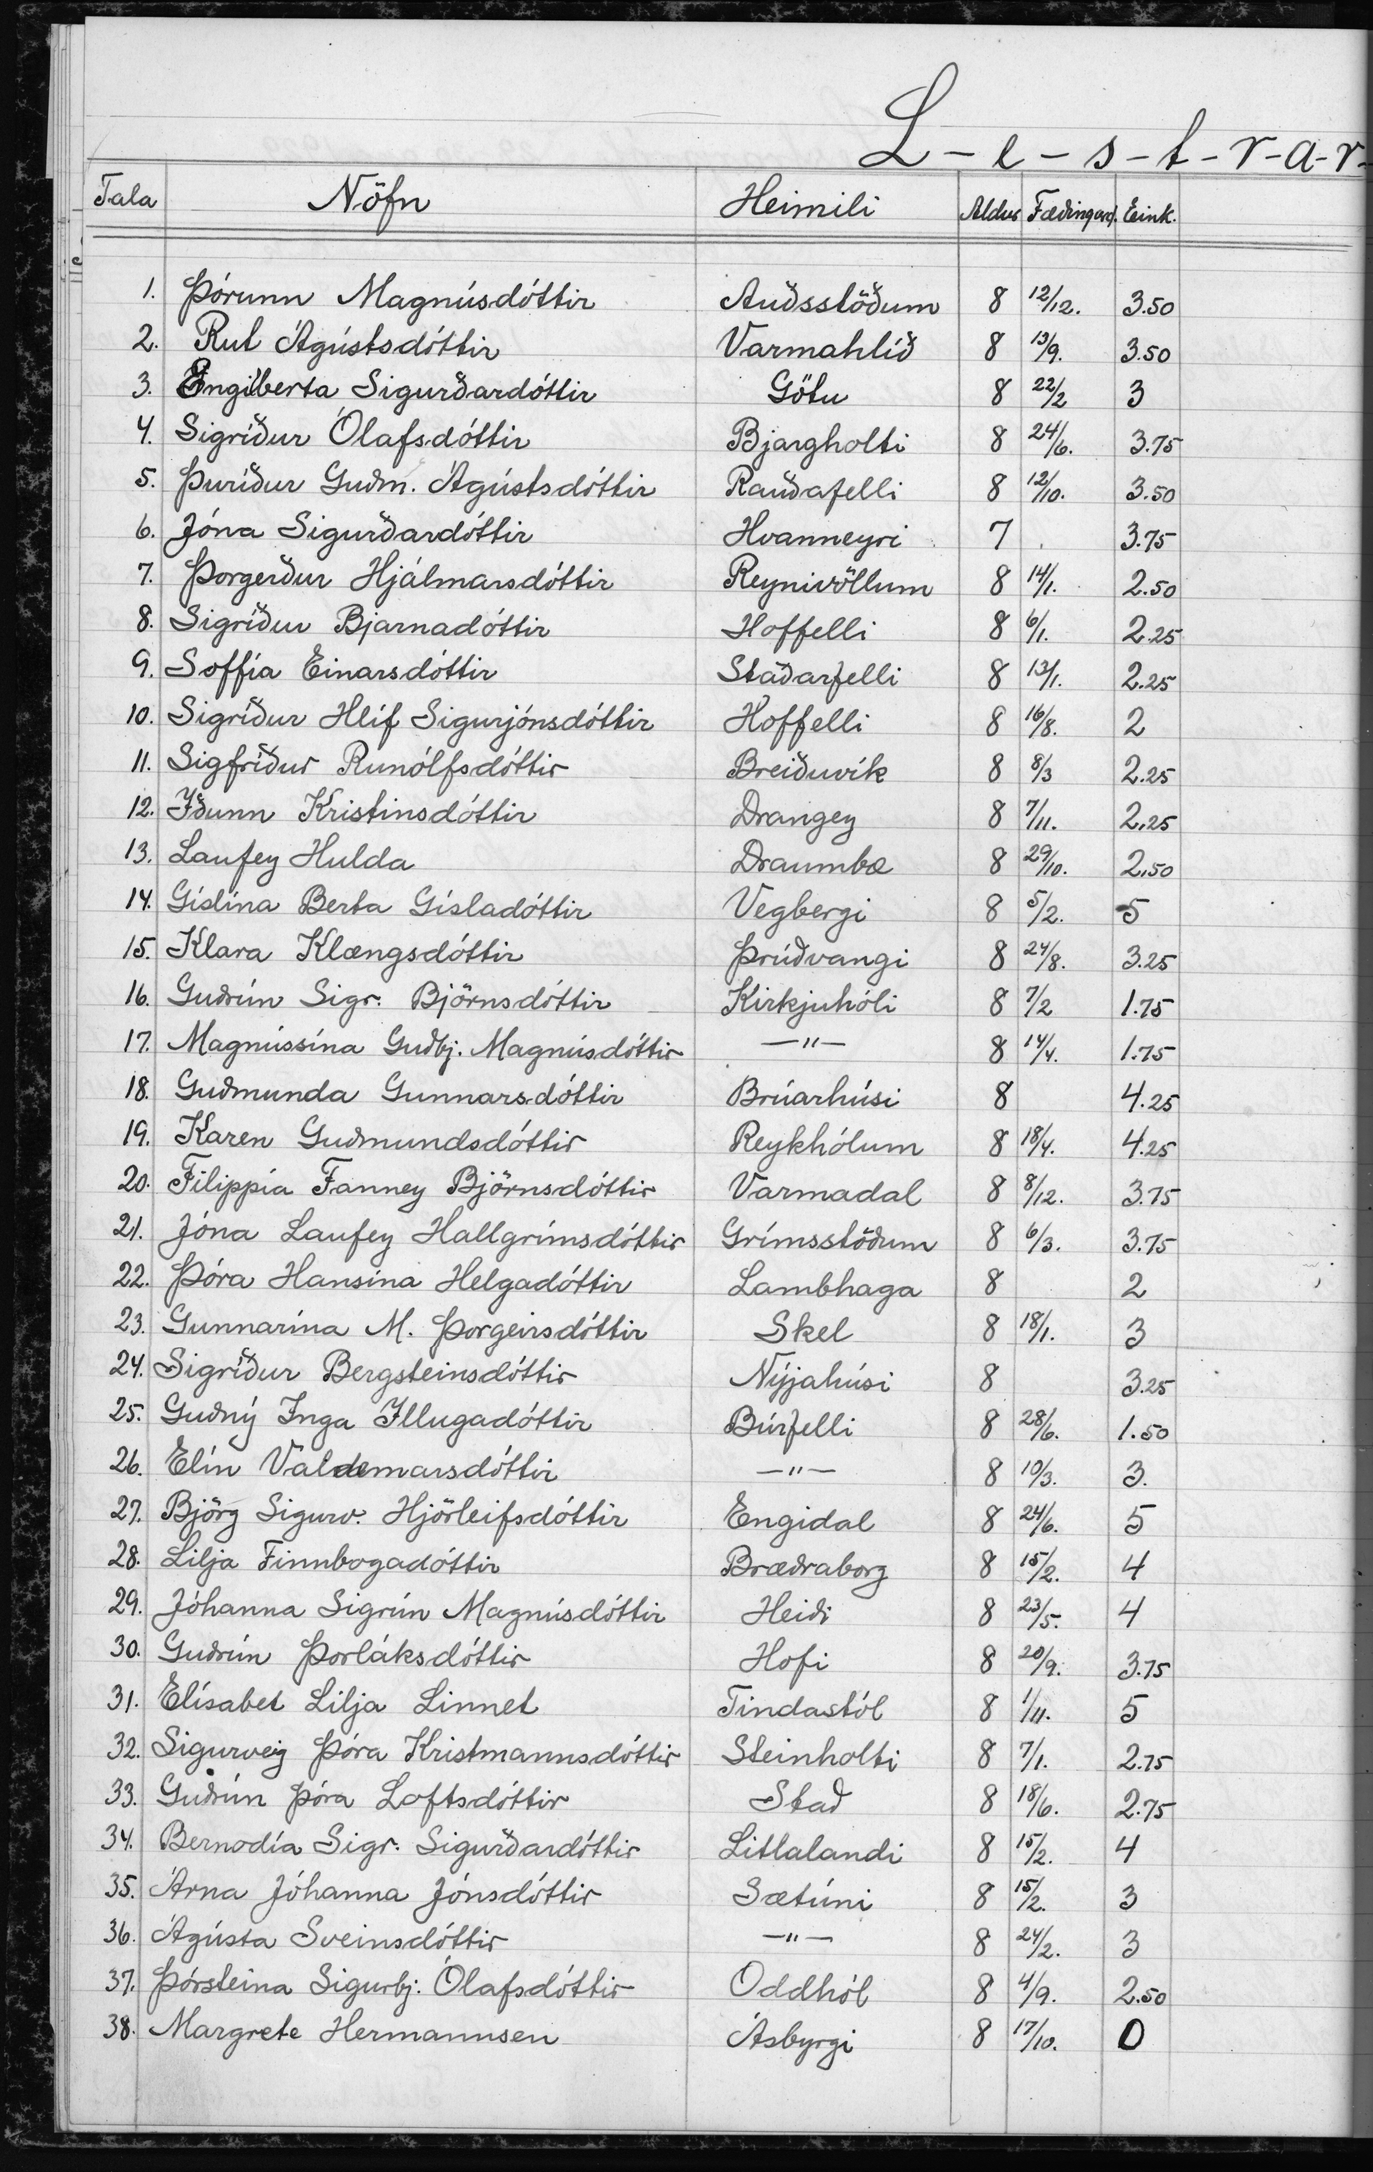 L-e-s-t-r-a-r-
Tala Nöfn Heimili Aldur Fæðingard. Eink.
1. Þórunn Magnúsdóttir Auðsstöðum 8 12/12. 3.50
2. Rut Ágústsdóttir Varmahlíð 8 13/9. 3.50
3. Engilberta Sigurðardóttir Götu 8 22/2 3
4. Sigríður Ólafsdóttir Bjargholti 8 24/6. 3.75
5. Þuríður Guðm. Ágústsdóttir Rauðafelli 8 12/10. 3.50
6. Jóna Sigurðardóttir Hvanneyri 7 3.75
7. Þorgerður Hjálmarsdóttir Reynivöllum 8 14/1. 2.50
8. Sigríður Bjarnadóttir Hoffelli 8 6/1. 2.25
9. Soffía Einarsdóttir Staðarfelli 8 13/1. 2.25
10. Sigríður Hlíf Sigurjónsdóttir Hoffelli 8 16/8. 2
11. Sigfríður Runólfsdóttir Breiðuvík 8 8/3 2.25
12. Iðunn Kristinsdóttir Drangey 8 7/11. 2.25
13. Laufey Hulda Draumbæ 8 29/10. 2.50
14. Gíslína Berta Gísladóttir Vegbergi 8 5/2. 5
15. Klara Klængsdóttir Þrúðvangi 8 24/8. 3.25
16. Guðrún Sigr. Björnsdóttir Kirkjuhóli 8 7/2 1.75
17. Magnússína Guðbj. Magnúsdóttir —"— 8 14/4. 1.75
18. Guðmunda Gunnarsdóttir Brúarhúsi 8 4.25
19. Karen Guðmundsdóttir Reykhólum 8 18/4. 4.25
20. Filippía Fanney Björnsdóttir Varmadal 8 8/12. 3.75
21. Jóna Laufey Hallgrímsdóttir Grímsstöðum 8 6/3. 3.75
22. Þóra Hansína Helgadóttir Lambhaga 8 2
23. Gunnarína M. Þorgeirsdóttir Skel 8 18/1. 3
24. Sigríður Bergsteinsdóttir Nýjahúsi 8 3.25
25. Guðný Inga Illugadóttir Búrfelli 8 28/6. 1.50
26. Elín Valdemarsdóttir —"— 8 10/3. 3.
27. Björg Sigurv. Hjörleifsdóttir Engidal 8 24/6. 5
28. Lilja Finnbogadóttir Bræðraborg 8 15/2. 4
29. Jóhanna Sigrún Magnúsdóttir Heiði 8 23/5. 4
30. Guðrún Þorláksdóttir Hofi 8 20/9. 3.75
31. Elísabet Lilja Linnet Tindastól 8 1/11. 5
32. Sigurveig Þóra Kristmannsdóttir Steinholti 8 7/1. 2.75
33. Guðrún Þóra Loftsdóttir Stað 8 18/6. 2.75
34. Bernodía Sigr. Sigurðardóttir Litlalandi 8 15/2. 4
35. Árna Jóhanna Jónsdóttir Sætúni 8 15/2. 3
36. Ágústa Sveinsdóttir —"— 8 24/2. 3
37. Þórsteina Sigurbj. Ólafsdóttir Oddhól 8 4/9. 2.50
38. Margrete Hermannsen Ásbyrgi 8 17/10. 0